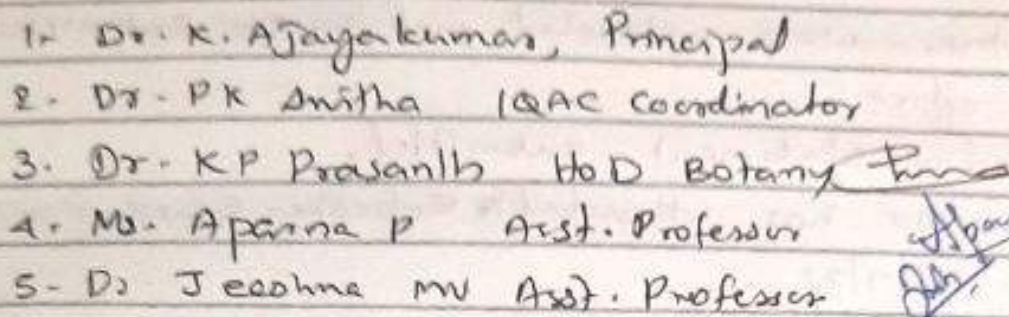 1- Dr. K. Ajayakumar, Principal
2. Dr. PK Anitha IQAC Coordinator
3. Dr. KP Prasanth HoD Botany
4. Ms. Aparna P Asst. Professor
5- Dr Jeeshna MV Asst. Professor